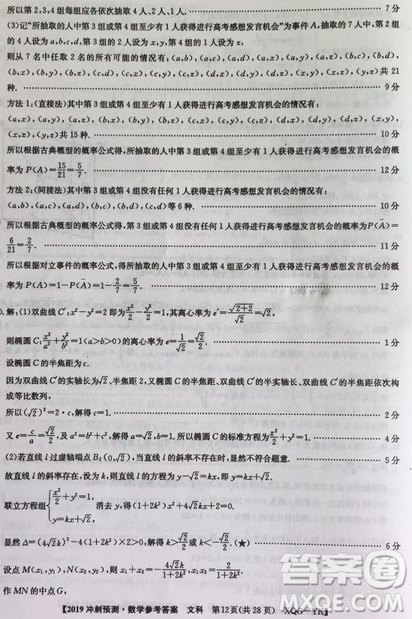 所以第2,3,4组每组应各依次抽取4人,2人,1人. 7分
(3)记“所抽取的人中第3组或第4组至少有1人获得进行高考感想发言机会”为事件A,抽取的7人中,第2组
的4人设为a,b,c,d,第3组的2人设为x,y,第4组的1人设为z,
则从7名中任取2名的所有可能的情况有:(a,b),(a,c),(a,d),(a,x),(a,y),(a,z),(b,c),(b,d),
(b,x),(b,y),(b,z),(c,d),(c,x),(c,y),(c,z),(d,x),(d,y),(d,z),(x,y),(x,z),(y,z)共21
种. 9分
方法1:(直接法)其中第3组或第4组至少有1人获得进行高考感想发言机会的情况有:
(a,x),(a,y),(a,z),(b,x),(b,y),(b,z),(c,x),(c,y),(c,z),(d,x),(d,y),(d,z),(x,y),(x,z),
(y,z)共15种. 10分
所以根据古典概型的概率公式得,所抽取的人中第3组或第4组至少有1人获得进行高考感想发言机会的概
率为P(A)=15/21=5/7. 12分
方法2:(间接法)其中第3组或第4组没有任何1人获得进行高考感想发言机会的情况有:
(a,b),(a,c),(a,d),(b,c),(b,d),(c,d)等6种. 10分
所以根据古典概型的概率公式得,所抽取的人中第3组或第4组没有任何1人获得进行高考感想发言机会的概率为P(Ā)=
6/21=2/7. 11分
所以根据对立事件的概率公式得,所抽取的人中第3组或第4组至少有1人获得进行高考感想发言机会的概
率为P(A)=1-P(Ā)=1-2/7=5/7. 12分
解:(1)双曲线C′:x²-y²=2即为x²/2-y²/2=1,其离心率为e′=√(2+2)/√2=√2.
则椭圆C:x²/a²+y²/b²=1(a>b>0)的离心率为e=1/√2=√2/2. 2分
设椭圆C的半焦距为c.
因为双曲线C′的半实轴长为√2、半焦距2,又椭圆C的半焦距、双曲线C′的半实轴长、双曲线C′的半焦距依次构
成等比数列,
所以(√2)²=2·c,解得c=1. 3分
又e=c/a=√2/2,及a²=b²+c²,解得b=1,a=√2,所以椭圆C的标准方程为x²/2+y²=1. 4分
(2)若直线l过虚轴端点B₂(0,√2),当直线l的斜率不存在时,显然不合题意. 5分
故直线l的斜率存在,设为k,则直线l的方程为y=kx+√2.
联立方程组{x²/2+y²=1, y=kx+√2, 消去y,得(1+2k²)x²+4√2kx+2=0.
显然Δ=(4√2k)²-4(1+2k²)×2>0,解得k>√2/2或k<-√2/2(*). 6分
设点M(x₁,y₁),N(x₂,y₂),则x₁+x₂=-4√2k/(1+2k²),x₁x₂=2/(1+2k²).
作MN的中点G,
【2019冲刺预测·数学参考答案 文科 第12页(共28页) XQG—YK】